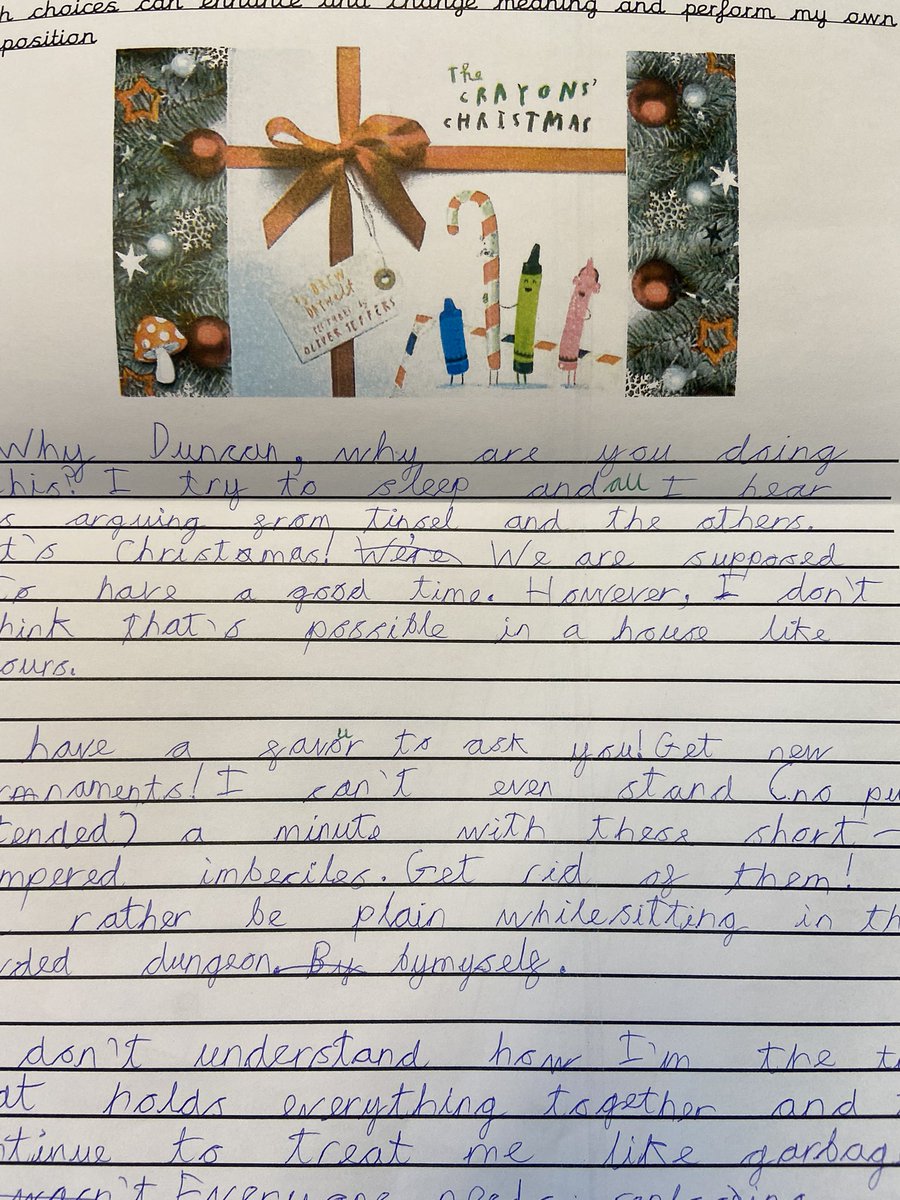 h choices can enhance and change meaning and perform my own
position
The
CRAYONS'
CHRISTMAS
by DREW
DAYWALT
PICTURES by
OLIVER JEFFERS
Why Duncan, why are you doing
his? I try to sleep and all I hear
s arguing from tinsel and the others.
t's Christamas! We're We are supposed
to have a good time. However, I don't
hink that's possible in a house like
ours.
have a favour to ask you! Get new
ornaments! I can't even stand (no pu
tended) a minute with these short-
mpered imbeciles. Get rid of them!
rather be plain whilesitting in th
dungeon. By bymyself.
don't understand how I'm the t
at holds everything together and
ntinue to treat me like garbag
wasn't Everyone needs replacing